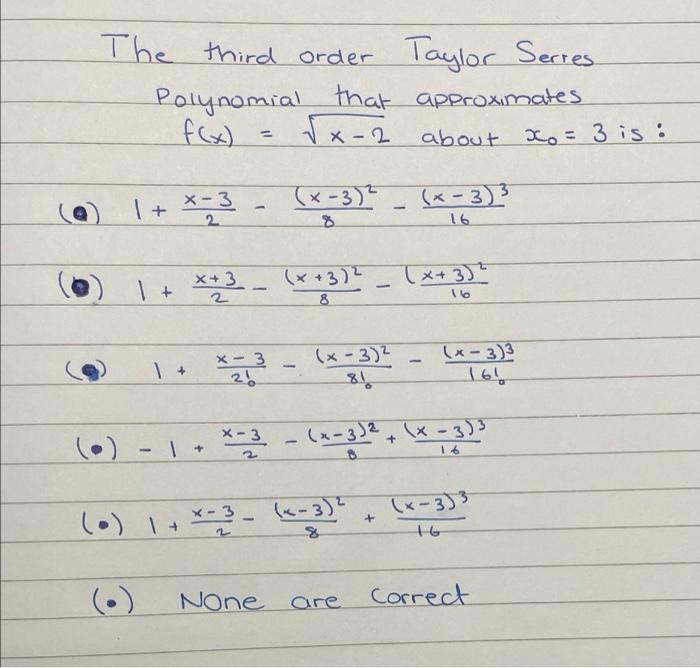 The third order Taylor Serres
Polynomial that approximates
f(x) = √x-2 about x₀ = 3 is :
(a) 1 + x-3/2 - (x-3)²/8 - (x-3)³/16
(b) 1 + x+3/2 - (x+3)²/8 - (x+3)²/16
(•) 1 + x-3/2! - (x-3)²/8! - (x-3)³/16!
(•) -1 + x-3/2 - (x-3)²/8 + (x-3)³/16
(•) 1 + x-3/2 - (x-3)²/8 + (x-3)³/16
(•) None are correct